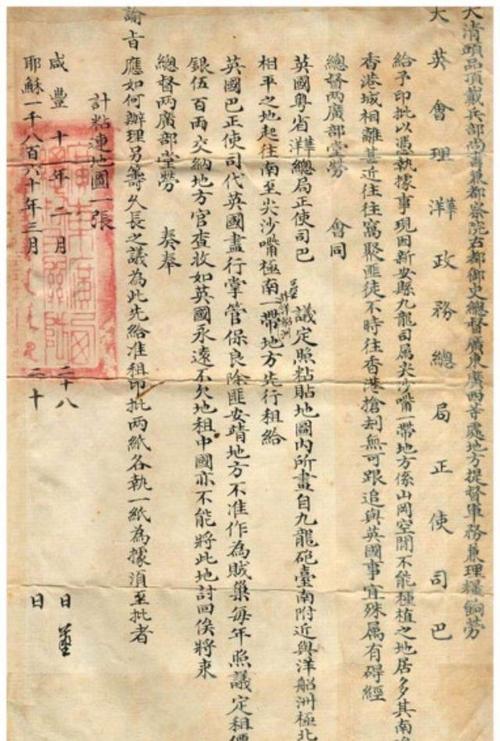 大清頭品頂戴兵部尚書兼都察院右都御史總督廣東廣西等處地方提督軍務兼理糧餉勞
大英會理華洋政務總局正使司巴
給予印批以憑執據事現因新安縣九龍司屬尖沙嘴一帶地方係山岡空閒不能種植之地居多其南
香港城相離甚近往往窩聚匪徒不時往香港搶刦無可跟追與英國事宜殊屬有碍經
總督兩廣部堂勞 會同
英國粵省華洋總局正使司巴 議定照粘貼地圖內所畫自九龍砲臺南附近與洋船洲極北
相平之地起往南至尖沙嘴極南一帶地方先行租給
英國巴正使司代英國盡行掌管保良除匪安靖地方不准作為賊巢每年照議定租價
銀伍百兩交納地方官查收如英國永遠不欠地租中國亦不能將此地討回俟將來
總督兩廣部堂勞 奏奉
諭旨應如何辦理另籌久長之議為此先給准租印批兩紙各執一紙為據須至批者
計粘連地圖一張
咸豐十年二月二十八日
耶穌一千八百六十年三月二十日